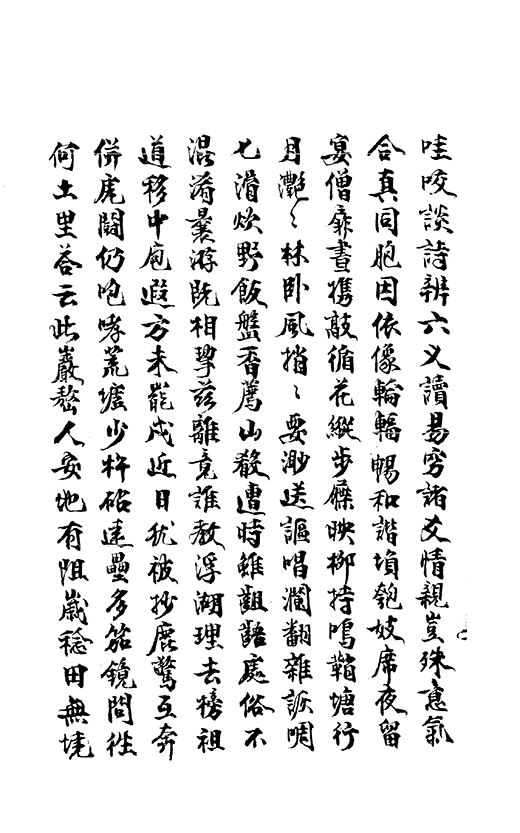 哇咬談詩辨六义讀易窮諸爻情親豈殊意氣
合真同胞因依像輪暢和諧塤匏妓席夜留
宴僧晝攜敲循花縱步屧映柳持鳴鞘塘行
月灧〻林卧風捎〻要渺送謳唱瀾翻雜詼啁
匕滑炊野飯盤香薦山殽遭時雖齟齬處俗不
混淆曩游既相挐茲離竟誰教浮湖理去榜祖
道移中庖遐方未罷戍近日犹被抄鹿驚互奔
併虎鬪仍咆哮荒墟少杵砧遠壘多笳鐃問往
何土里荅云此巖嶅人安地有阻歲稔田無墝